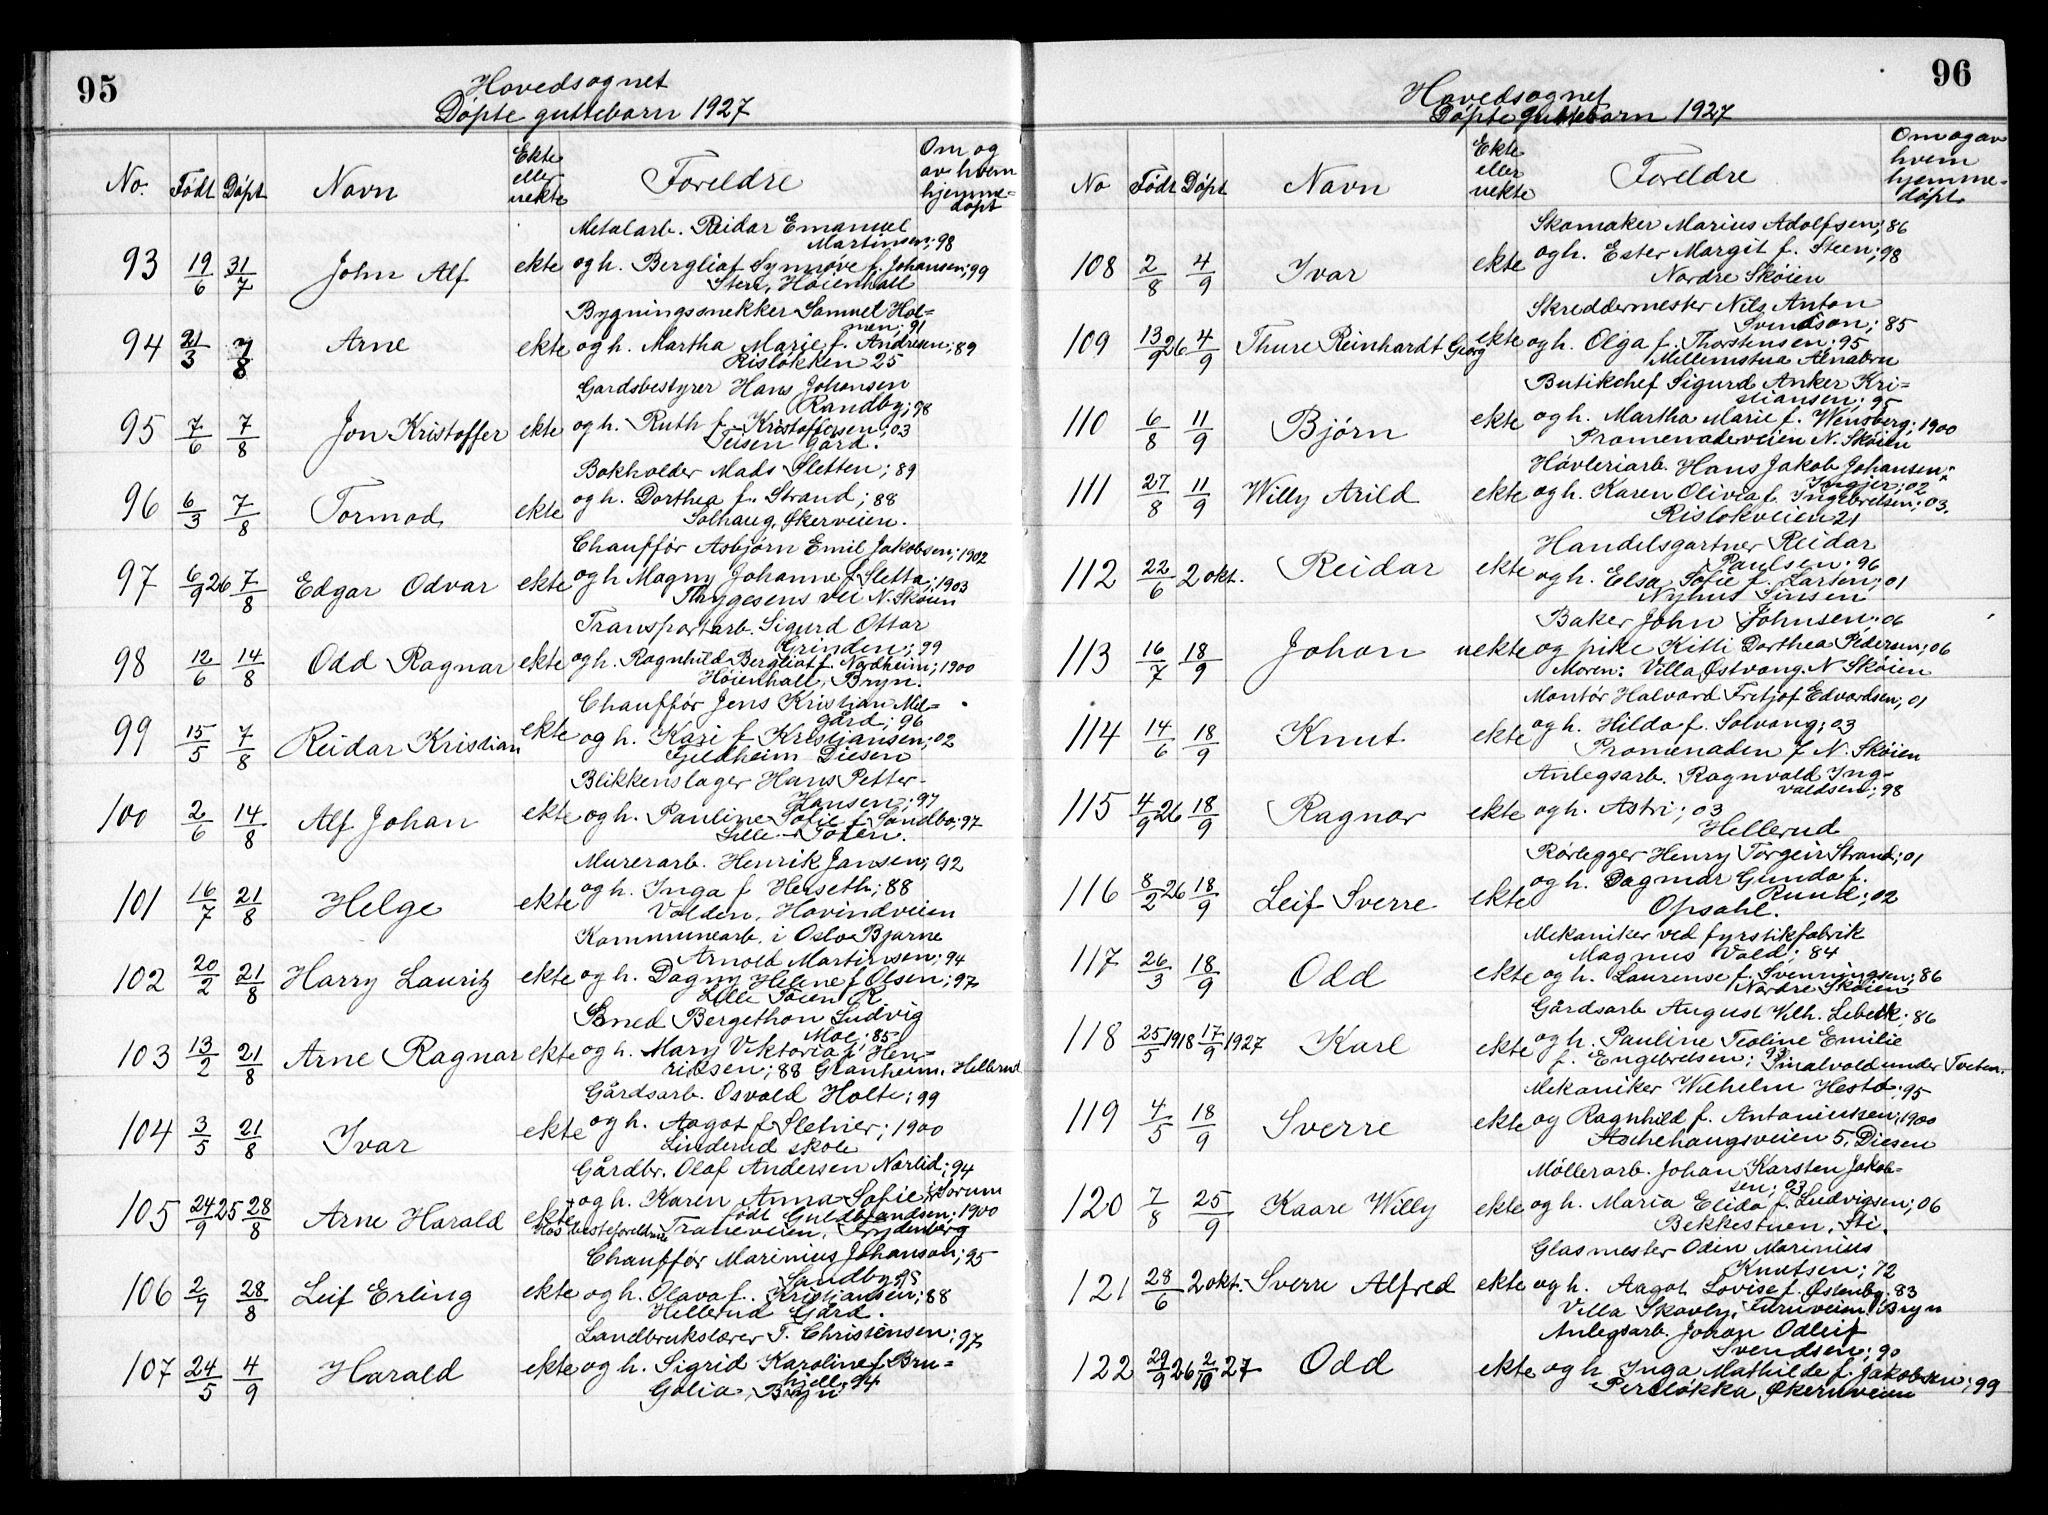 95
Hovedsognet
Døpte guttebarn 1927
No. Født Døpt Navn Ekte eller uekte Foreldre Om og av hvem hjemme-døpt
Metalarb. Reidar Emanuel
Martinsen; 98
93 19/6 31/7 John Alf ekte og h. Bergliot Synnøve f. Johansen; 99
Høienhall
Bygningssnekker Samuel Hol-
men; 91
94 21/3 7/8 Arne ekte og h. Martha Marie f. Andresen; 89
Risløkken 25
Gardsbestyrer Hans Johansen
Randby; 98
95 7/6 7/8 Jon Kristoffer ekte og h. Ruth f. Kristoffersen; 03
Teisen Gård.
Bokholder Mads Sletten; 89
96 6/3 7/8 Tormod ekte og h. Dorthea f. Strand; 88
Solhaug, Økerveien.
Chauffør Asbjørn Emil Jakobsen; 1902
97 6/9 26 7/8 Edgar Odvar ekte og h Magny Johanne f. Sletta; 1903
Thygesens vei N. Skøien
Transportarb. Sigurd Ottar
Grinden; 99
98 12/6 14/8 Odd Ragnar ekte og h. Ragnhild Bergliot f. Nordheim; 1900
Høienhall, Bryn.
Chauffør Jens Kristian Mel-
gård; 96
99 15/5 7/8 Reidar Kristian ekte og h. Kari f. Kristiansen; 02
Fjeldheim Diesen
Blikkenslager Hans Petter
Hansen; 97
100 2/6 14/8 Alf Johan ekte og h. Pauline Sofie f. Sandbo; 97
Lille-Tøien.
Murerarb. Henrik Jansen; 92
101 16/7 21/8 Helge ekte og h. Inga f. Herseth; 88
Volden, Hovindveien
Kommunearb. i Oslo Bjarne
Arnold Martinsen; 94
102 20/2 21/8 Harry Lauritz ekte og h. Dagny Helene f. Olsen; 97
Lille Tøien R
Smed Bergethon Ludvig
Moe; 85
103 13/2 21/8 Arne Ragnar ekte og h. Mary Viktoria f. Hen-
riksen; 88 Granheim, Hellerud
Gårdsarb. Osvald Holte; 99
104 3/5 21/8 Ivar ekte og h. Aagot f. Sletner; 1900
Linderud skole
Gårdbr. Olaf Andersen Norlid; 94
105 24/9 25 28/8 Arne Harald ekte og h. Karen Anna Sofie i Sørum
født Guldbrandsen; 1900
Hos besteforeldrene Traneveien, Frydenberg
Chauffør Marinius Johanson; 95
Sandbye
106 2/7 28/8 Leif Erling ekte og h. Olava f. Kristiansen; 88
Hellerud Gård.
Landbrukslærer T. Christensen; 97
107 24/5 4/9 Harald ekte og h. Sigrid Karoline f. Bru-
hjell; 94
Golia, Bryn
96
Hovedsognet
Døpte guttebarn 1927
No Født Døpt Navn Ekte eller uekte Foreldre Om og av hvem hjemme-døpt
Skomaker Marius Adolfsen; 86
108 2/8 4/9 Ivar ekte og h. Ester Margit f. Steen; 98
Nordre Skøien
Skreddermester Nils Anton
Svendson; 85
109 13/9 26 4/9 Thure Reinhardt Georg ekte og h. Olga f. Thorstensen; 95
Mellemstua Alnabru
Butikchef Sigurd Anker Kri-
stiansen; 95
110 6/8 11/9 Bjørn ekte og h. Martha Marie f. Wensberg; 1900
Promenadeveien N. Skøien
Høvleriarb. Hans Jakob Johansen
Ingjer; 02
111 27/8 11/9 Willy Arild ekte og h. Karen Olivia f. Ingebretsen; 03.
Risløkveien 21
Handelsgartner Reidar
Paulsen; 96
112 22/6 2 okt. Reidar ekte og h. Elsa Sofie f. Larsen; 01
Nyhus Sinsen
Baker John Johnsen; 06
113 16/7 18/9 Johan uekte og pike Kitti Dorthea Pedersen; 06
Moren: Villa Østvang. N. Skøien
Montør Halvard Fritjof Edvardsen; 01
114 14/6 18/9 Knut ekte og h. Hilda f. Solvang; 03
Promenaden 7 N. Skøien
Anlegsarb. Ragnvald Ing-
valdsen; 98
115 4/9 26 18/9 Ragnar ekte og h. Astri; 03
Hellerud
Rørlegger Henry Torgeir Strand; 01
116 8/2 26 18/9 Leif Sverre ekte og h. Dagmar Gunda f.
Rund; 02
Opsahl.
Mekaniker ved fyrstikfabrik
Magnus Vold; 84
117 26/3 18/9 Odd ekte og h. Laurense f. Svenningsen; 86
Nordre Skøien
Gårdsarb August Vilh. Lebeck; 86
118 25/5 1918 17/9 1927 Karl ekte og h. Pauline Teoline Emilie
f. Engebretsen; 93 Smalvold under Tveten.
Mekaniker Wilhelm Hestø; 95
119 4/5 18/9 Sverre ekte og Ragnhild f. Antoniussen; 1900
Aschehaugsveien 5, Diesen
Møllerarb. Johan Karsten Jakob-
sen; 03
120 7/8 25/9 Kaare Willy ekte og h. Maria Elida f. Ludvigsen; 06
Bekkestuen, Sti.
Glasmester Odin Marinius
Knutsen; 72
121 28/6 2 okt. Sverre Alfred ekte og h. Aagot Lovise f. Østenby; 83
Villa Skovly, Furuveien Bryn
Anlegsarb. Johan Odleif
Svendsen; 90
122 29/9 26 2/10 27 Odd ekte og h Inga Mathilde f. Jakobsen; 99
Perløkka, Økernveien